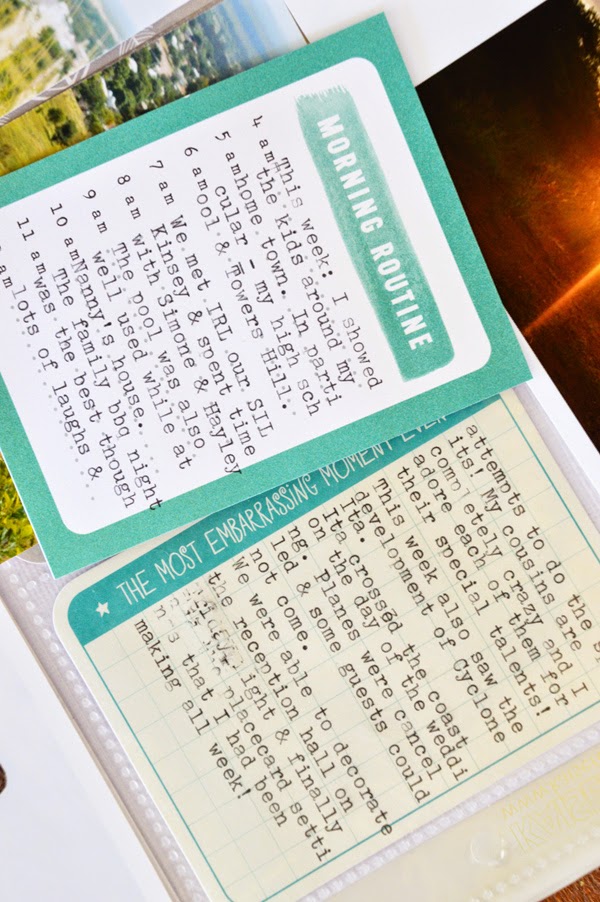 MORNING ROUTINE
4 am This week: I showed
the kids around my
5 am home town. In parti
cular - my high sch
6 am ool & Towers Hill.
7 am We met IRL our SIL
Kinsey & spent time
8 am with Simone & Hayley
The pool was also
9 am well used while at
10 am Nanny's house.
The family bbq night
11 am was the best though
am lots of laughs &
THE MOST EMBARRASSING MOMENT EVER
attempts to do the
its! My cousins are
completely crazy and I
adore each of them for
their special talents!
This week also saw the
development of Cyclone
Ita.
Ita crossed the coast
on the day of the weddi
ng. Planes were cancel
led & some guests could
not come.
We were able to decorate
the reception hall on
night & finally
placecard setti
that I had been
making all week!